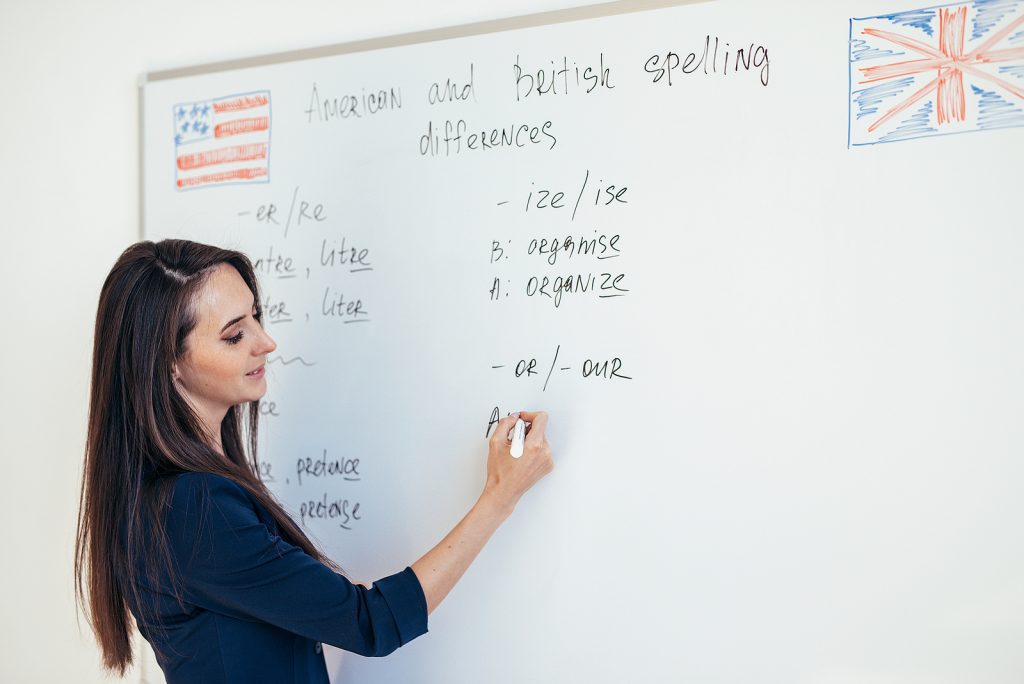 American and British spelling
differences
- er/re
, litre
, liter
, pretence
pretense
- ize/ise
B: organise
A: organize
- or/- our
A: